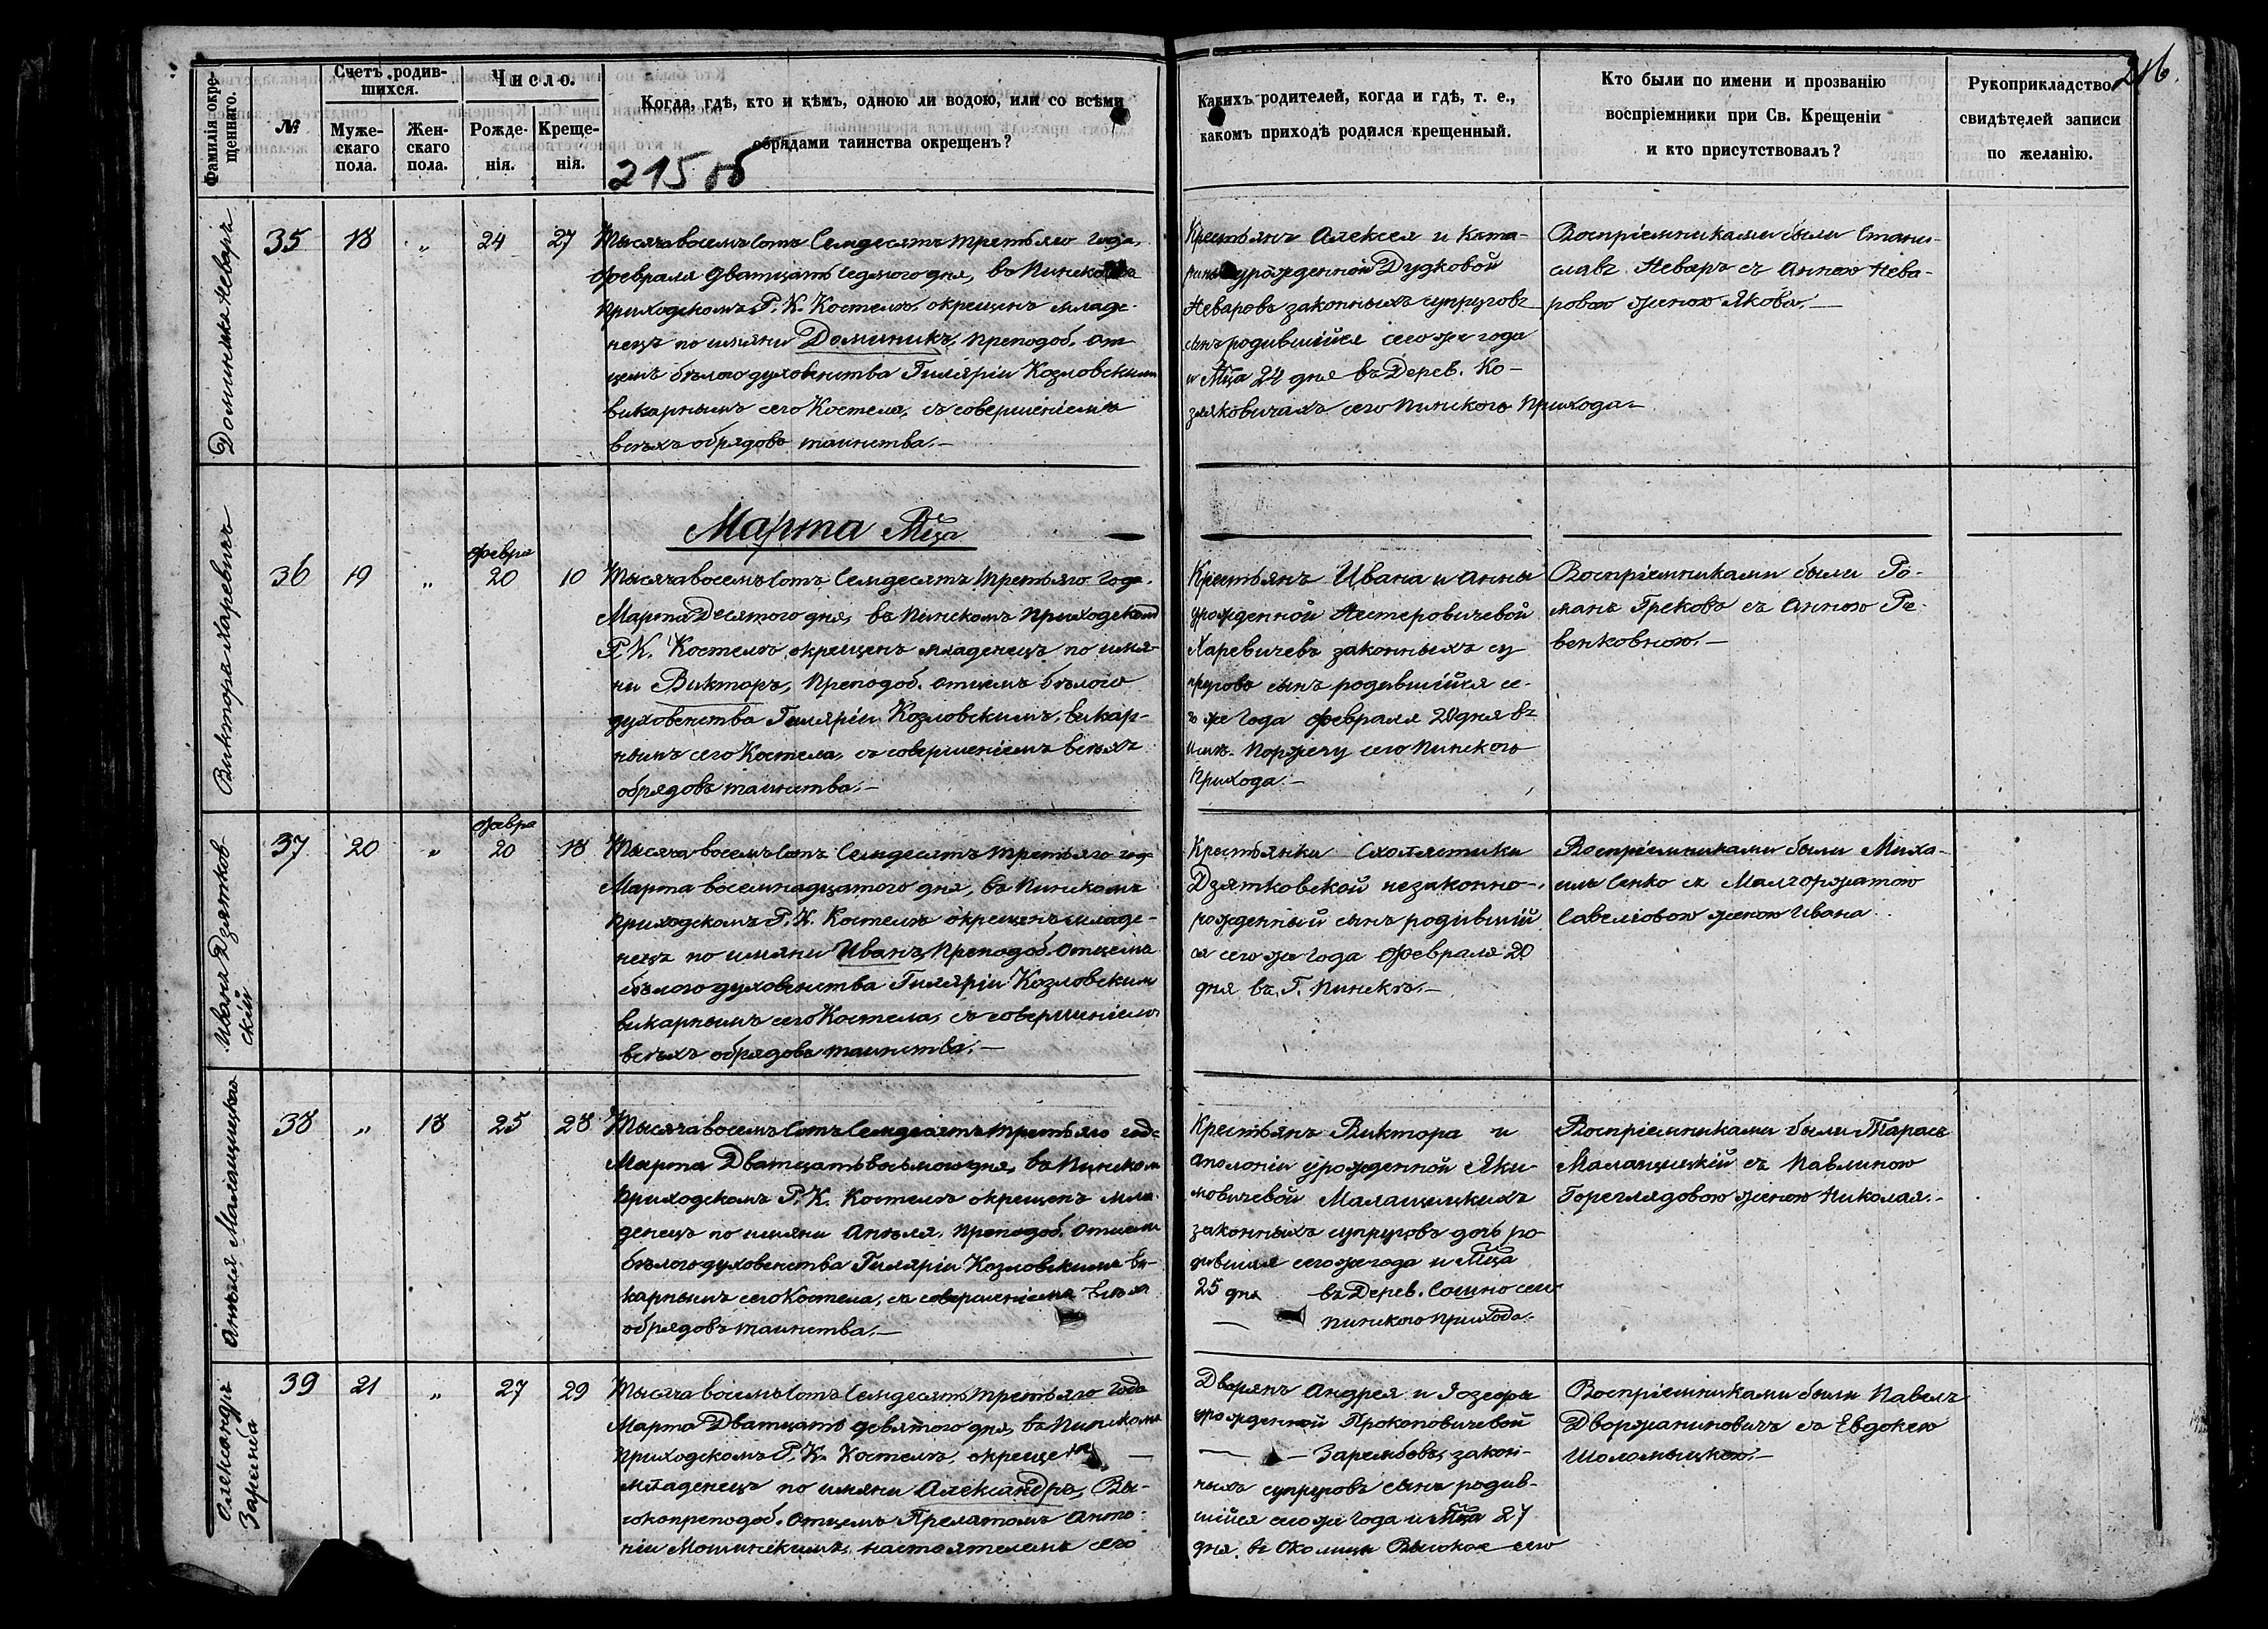 216.
Фамилія окре-
щеннаго.
№
Счетъ родив-
шихся.
Муже-
скаго
пола.
Жен-
скаго
пола.
Число.
Рожде-
нія.
Креще-
нія.
Когда, гдѣ, кто и кѣмъ, одною ли водою, или со всѣми
обрядами таинства окрещенъ?
215 об
Какихъ родителей, когда и гдѣ, т. е.,
какомъ приходѣ родился крещенный.
Кто были по имени и прозванію
воспріемники при Св. Крещеніи
и кто присутствовалъ?
Рукоприкладство
свидѣтелей записи
по желанію.
Доминика Неваръ
35
18
„
24
27
Тысяча восемъ Сотъ Семдесятъ третьяго Года,
Февраля Дватцать Седмого дня, въ Пинскомъ
Приходскомъ Р. К. Костелѣ, окрещенъ младе-
нецъ по имяни Доминикъ, Преподоб. от-
цемъ бѣлого духовенства Гиляріи Козловскимъ
викарнымъ сего Костела, съ совершеніемъ
всѣхъ обрядовъ таинства.—
Крестьянъ Алексея и Ката-
урожденной Дудковой
Неваровъ законныхъ супруговъ
сынъ родившійся сего же года
и Мца 24 дня въ Дерев. Ко-
зляковичахъ сего Пинского Прихода.—
Воспріемниками были Стани-
славъ Неваръ съ Анною Нева-
ровою женою Якова.—
Марта Мца
Виктора Харевичъ
36
19
„
Февра
20
10
Тысяча восемъ Сотъ Семдесятъ Третьяго Года.
Марта Десятого дня, въ Пинскомъ Приходскомъ
Р. К. Костелѣ, окрещенъ младенецъ по имя-
ни Викторъ, Преподоб. отцемъ бѣлого
духовенства Гиляріи Козловскимъ, викар-
нымъ сего Костела, съ совершеніемъ всѣхъ
обрядовъ таинства.—
Крестьянъ Ивана и Анны
урожденной Нестеровичевой
Харевичевъ законныхъ су
пруговъ сынъ родившійся се-
го же Года Февраля 20 дня въ
Имѣ. Поржечу сего Пинского
Прихода.—
Воспріемниками были Ро-
манъ Грековъ съ Анною Ре-
венковною.—
Ивана Дзятков
скій
37
20
„
Февра
20
18
Тысяча восемъ Сотъ Семдесятъ третьяго год
Марта восемнадцатого дня, въ Пинскомъ
Приходскомъ Р. К. Костелѣ окрещенъ младе-
нецъ по имяни Иванъ, Преподоб. Отцемъ
бѣлого духовенства Гиляріи Козловским
викарнымъ сего Костела, съ совершеніемъ
всѣхъ обрядовъ таинства.—
Крестьянки Схолястики
Дзятковской незаконно-
рожденный сынъ родившій
ся сего же Года Февраля 20
дня въ Г. Пинскѣ.—
Воспріемниками были Миха-
илъ Сенко съ Малгоржатою
Савеліовою женою Ивана.
Анѣля Малащицкаго
38
„
18
25
28
Тысяча восемъ Сотъ Семдесятъ Третьяго год
Марта Дватцать восьмого дня, въ Пинском
Приходскомъ Р. К. Костелѣ окрещенъ мла-
денецъ по имяни Анѣля, Преподоб. Отцемъ
бѣлого духовенства Гиляріи Козловскимъ ви-
карнымъ сего Костела, съ совершеніемъ всѣхъ
обрядовъ таинства.—
Крестьянъ Виктора и
Аполоніи урожденной Яки-
мовичевой Малащицкихъ
законныхъ супруговъ дочь ро-
дившаяся сего же года и Мца
25 дня въ Дерев. Сошно сего
Пинского Прихода.
Воспріемниками были Тарасъ
Малащицкій съ Павлиною
Гореглядовою женою Николая.—
Александръ
Заремба
39
21
„
27
29
Тысяча восемъ Сотъ Семдесятъ Третьяго Года
Марта Дватцать девятого дня, въ Пинскомъ
Приходскомъ Р. К. Костелѣ, окрещенъ —
младенецъ по имяни Александръ, Вы-
сокопреподоб. Отцемъ Прелатомъ Анто-
ніи Мошинскимъ, настоятелемъ сего
Дворянъ Андрея и Іозефы
урожденной Прокоповичевой
— Зарембовъ, закон-
ныхъ супруговъ сынъ родив-
шійся сего же Года и Мца 27
дня, въ Околицы Высокое сего
Воспріемниками были Павелъ
Дворжаниновичъ съ Евдокею
Шоломыцкою.—